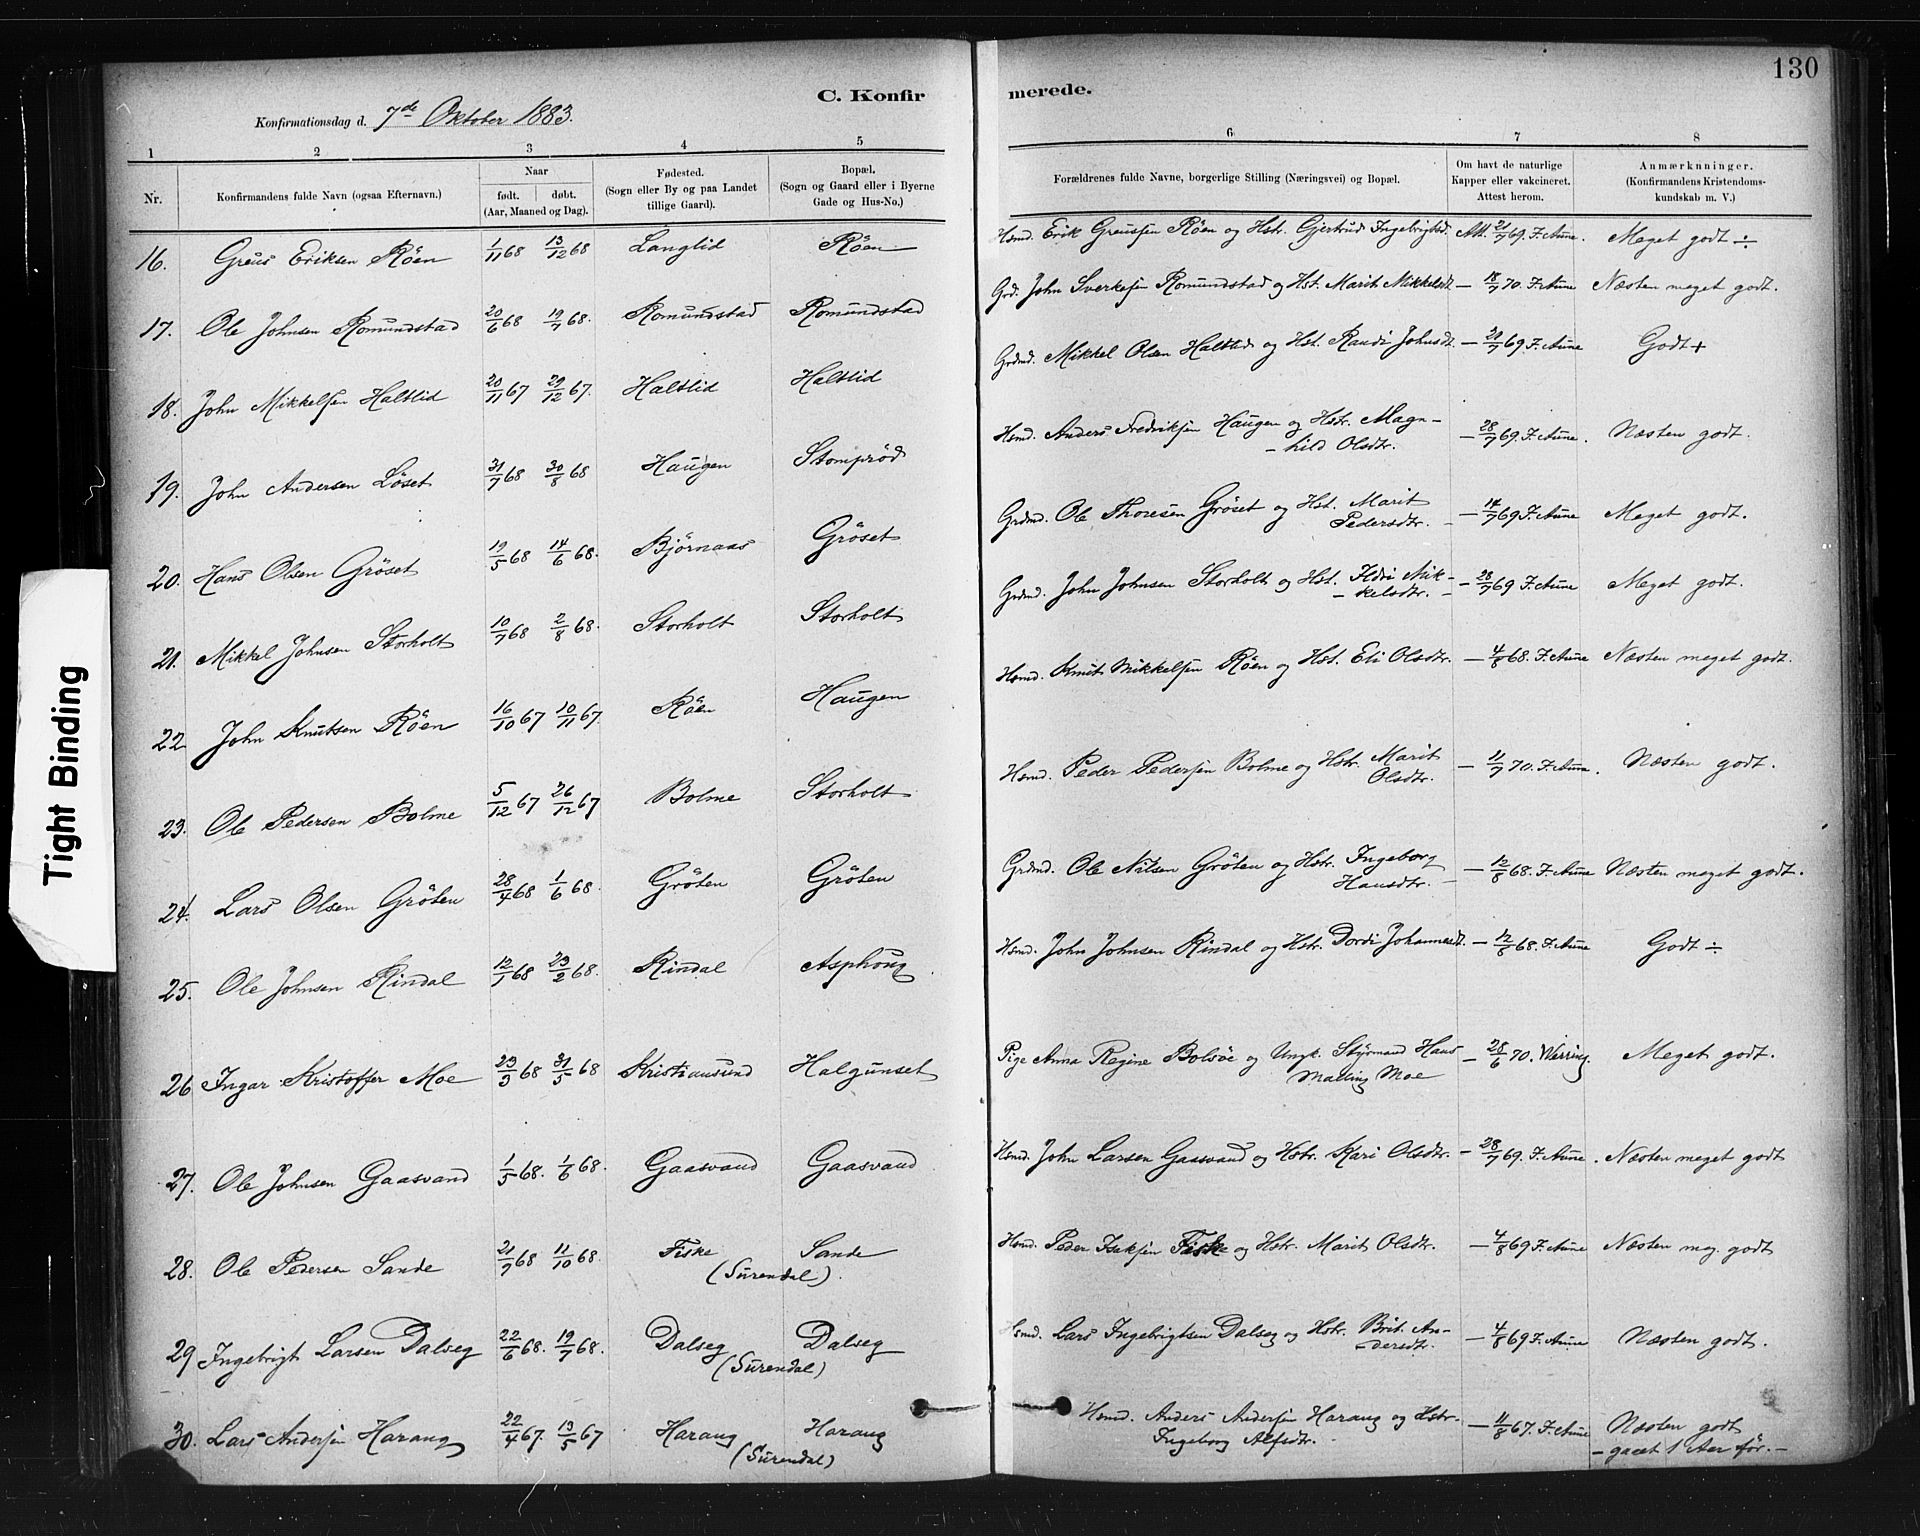 130
C. Konfir merede.
Konfirmationsdag d. 7de Oktober 1883.
1 2 3 4 5 6 7 8
Nr. Konfirmandens fulde Navn (ogsaa Efternavn.) Naar født. døbt. (Aar, Maaned og Dag). Fødested. (Sogn eller By og paa Landet tillige Gaard). Bopæl. (Sogn og Gaard eller i Byerne Gade og Hus-No.) Forældrenes fulde Navne, borgerlige Stilling (Næringsvei) og Bopæl. Om havt de naturlige Kapper eller vakcineret. Attest herom. Anmærknninger. (Konfirmandens Kristendoms- kundskab m. V.)
16. Greus Eriksen Röen 1/11 68 13/12 68 Langlid Röen Hsmd. Erik Greussen Röen og Hst. Gjertrud Ingebrigtsd. Att. 21/7 69. F. Aune. Meget godt ÷
17. Ole Johnsen Romundstad 20/6 68 19/7 68. Romundstad Romundstad Grd. John Sverkesen Romundstad og Hst. Marit Mikkelsdt. — 18/7 70. F. Aune Næsten meget godt.
18. John Mikkelsen Haltlid 20/11 67 29/12 67. Haltlid Haltlid Grdmd. Mikkel Olsen Haltlid og Hst. Randi Johnsdt. — 21/7 69 F. Aune Godt +
19. John Andersen Löset 31/7 68 30/8 68 Haugen Stomprød Hsmd. Anders Fredriksen Haugen og Hstr. Magn-
- hild Olsdtr. — 28/7 69. F. Aune. Næsten godt.
20. Hans Olsen Gröset 19/5 68 14/6 68. Bjørnaas Gröset Grdmd. Ole Thoresen Gröset og Hst. Marit
Pedersdtr. — 14/7 69 F. Aune Meget godt.
21. Mikkel Johnsen Storholt 10/7 68 2/8 68. Storholt Storholt Grdmd. John Johnsen Storholt og Hst. Ildri Mik-
- kelsdtr. — 28/7 69 F. Aune Meget godt.
22 John Knutsen Röen 16/10 67 10/11 67. Röen Haugen Hsmd. Knut Mikkelsen Röen og Hst. Eli Olsdtr. — 4/8 68. F. Aune Næsten meget godt.
23. Ole Pedersen Bolme 5/12 67 26/12 67 Bolme Storholt Hsmd. Peder Pedersen Bolme og Hstr. Marit
Olsdtr. — 11/7 70. F. Aune. Næsten godt.
24. Lars Olsen Gröten 28/4 68 1/6 68. Gröten Gröten Grdmd. Ole Nilsen Gröten og Hstr. Ingeborg
Hansdtr. — 12/8 68. F. Aune Næsten meget godt.
25. Ole Johnsen Rindal 12/1 68 23/2 68. Rindal Asphoug. Hsmd. John Johnsen Rindal og Hstr. Dordi Johannesdt. — 12/8 68. F. Aune Godt ÷
26 Ingar Kristoffer Moe 23/3 68 31/5 68 Kristiansund Halgunset Pige Anna Regine Bolsöe og Ungk. Styrmand Hans
Malling Moe — 28/6 70. Werring. Meget godt.
27. Ole Johnsen Gaasvand 1/5 68. 1/6 68. Gaasvand Gaasvand Hsmd. John Larsen Gaasvand og Hstr. Kari Olsdtr. — 28/7 69. F. Aune. Næsten meget godt
28. Ole Pedersen Sande 21/7 68 11/10 68. Fiske Sande
(Surendal). Hsmd. Peder Isaksen Fiske og Hstr. Marit Olsdtr. — 4/8 69 F. Aune Næsten meg. godt
29 Ingebrigt Larsen Dalseg 22/6 68. 19/7 68. Dalseg Dalseg
(Surendal) Hsmd. Lars Ingebrigtsen Dalseg og Hstr. Brit An-
- dersdtr. — 4/8 69 F. Aune Næsten godt.
30. Lars Andersen Harang 22/4 67. 13/5 67 Harang Harang
(Surendal) Hsmd. Anders Andersen Harang og Hstr.
Ingeborg Alfsdtr. — 11/8 67. F. Aune Næsten godt
- gaaet 1 Aar før. -
Tight Binding